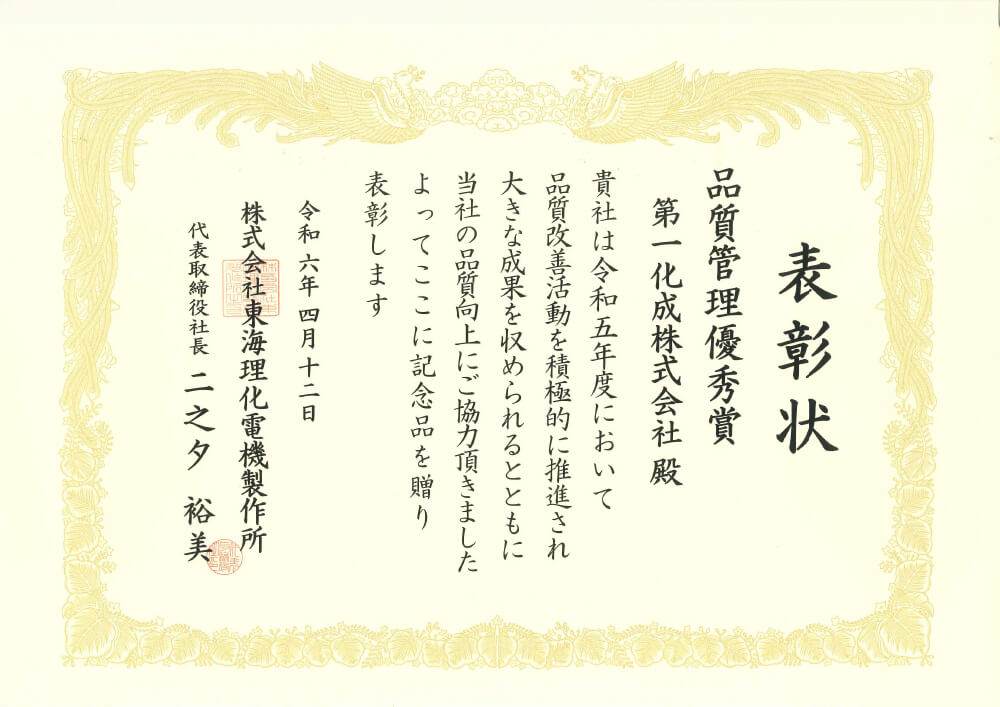 表彰状
品質管理優秀賞
第一化成株式会社 殿
貴社は令和五年度において
品質改善活動を積極的に推進され
大きな成果を収められるとともに
当社の品質向上にご協力頂きました
よってここに記念品を贈り
表彰します
令和六年四月十二日
株式会社東海理化電機製作所
代表取締役社長 二之夕 裕美